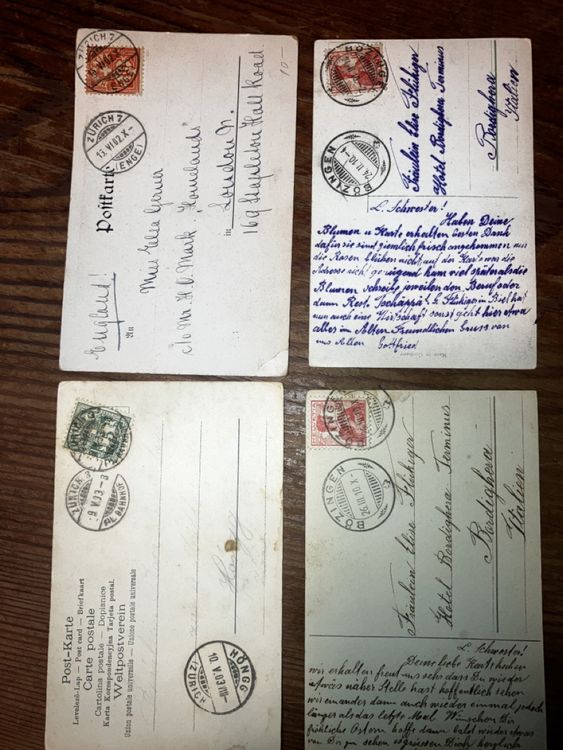 ZÜRICH 7
ZÜRICH 7
13.VI.02.X-
(ENGE)
Postkarte
England!
An
Miss Ella Gerner
To Mr H. A. Mark "Homelands"
in London N.
169 Stapleton Hall Road
10-
BÖZINGEN
BÖZINGEN
Fräulein Elise Flükiger
Hotel Bordighera Terminus
Bordighera
Italien
L. Schwester!
Haben Deine
Blumen u Karte erhalten besten Dank
dafür sie sind ziemlich frisch angekommen nur
die Rosen bleichen nicht, auf der Karte war die
Adresse nicht kam viel später als die
Blumen schreibe jeweilen den Beruf oder
dann Rest. Tschäppät b. Flükiger in Biel hat
nun auch eine Wirtschaft sonst geht hier etwa
alles im Alten. Freundlichen Gruss von
uns Allen Gottfried
ZÜRICH
9.V.03-8
FIL. BAHNHOF
Post-Karte
Levelező-Lap — Post card — Briefkaart
Carte postale
Cartolina postale — Dopisnice
Karta Korespondencyjna Tarjeta postal.
Weltpostverein
Union postale universelle — Unione postale universale
HÖNGG
10.V.03.VIII-
(ZÜRICH)
BÖZINGEN
BÖZINGEN
26.III.10.X-
Fräulein Elise Flükiger
Hotel Bordighera Terminus
Bordighera
Italien
L. Schwester!
Deine liebe Karte haben
wir erhalten freut uns sehr dass Du wieder
etwas näher Stelle hast hoffentlich sehen
wir einander dann auch wieder einmal jedoch
länger als das letzte Mal. Wünschen Dir
fröhliche Ostern hoffe dann bald wieder etwas
von Dir zu sehen grüssen Dich herzlich